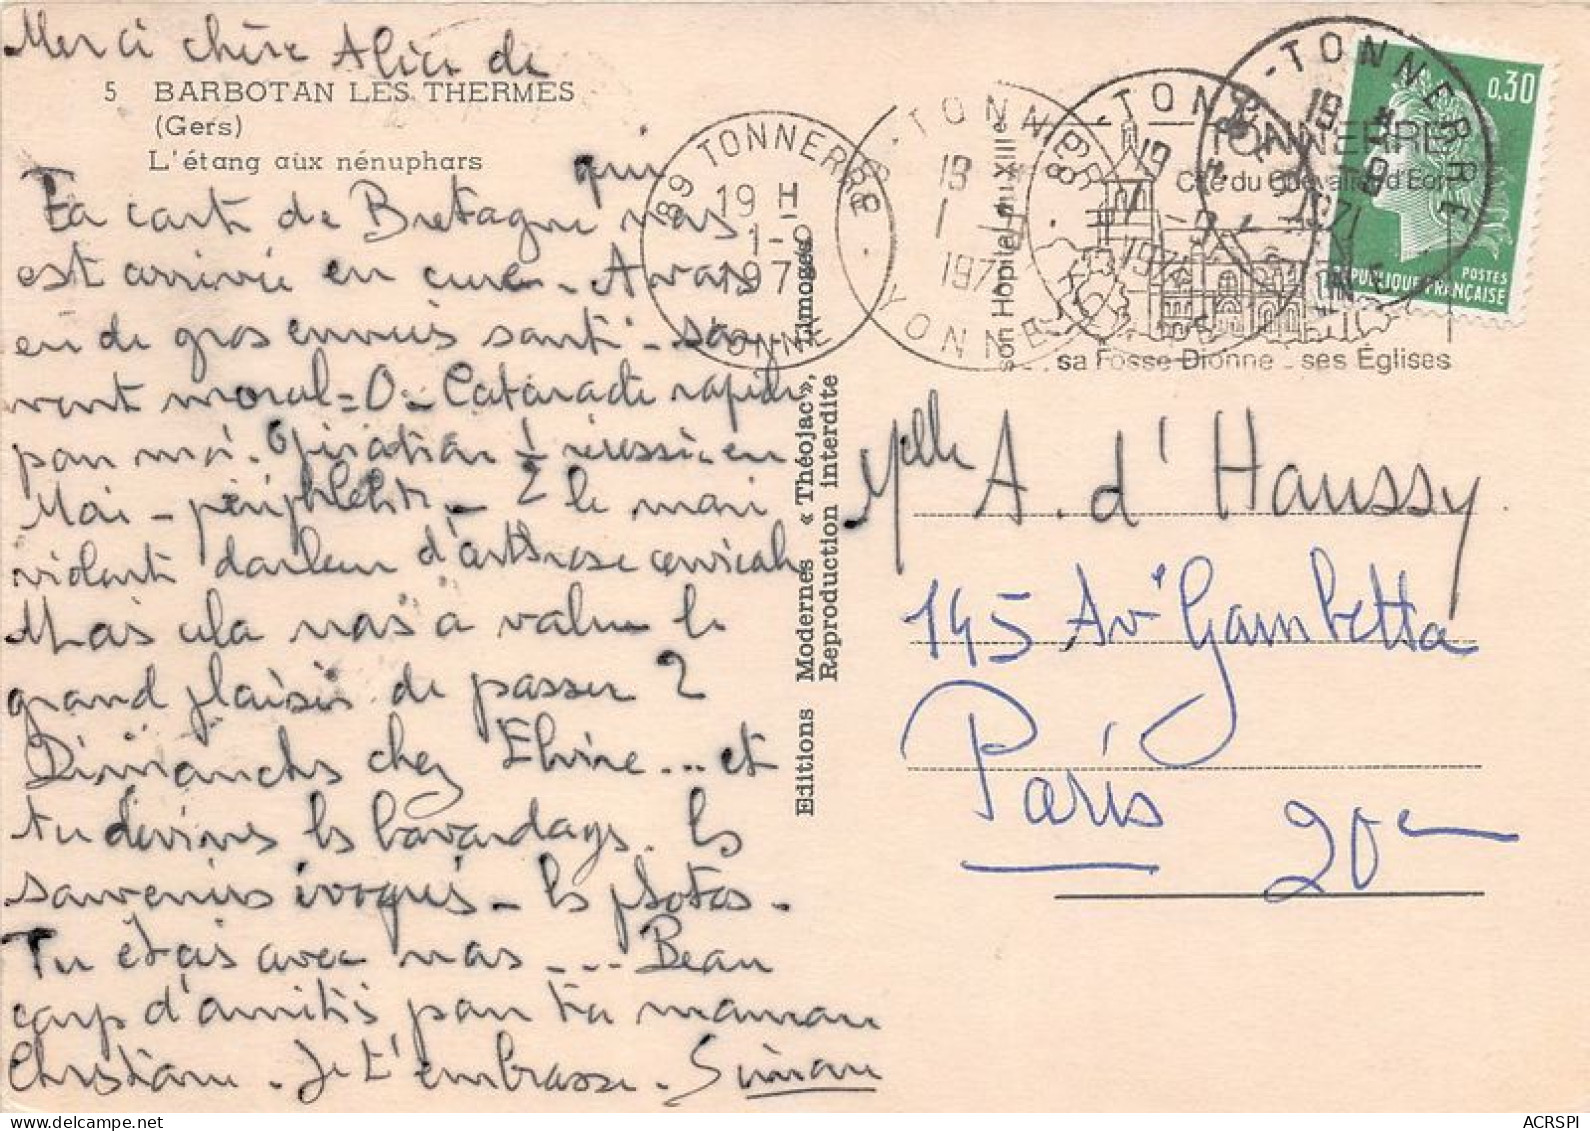 Merci chère Alice de
5 BARBOTAN LES THERMES
(Gers)
L'étang aux nénuphars
Ta carte de Bretagne qui nous
est arrivée en cure - Avons
eu de gros ennuis santé - son
vent moral = 0 - Cataracte rapide
pour moi. Opération ½ réussie en
Mai - périphlébite - 2 le mari
violente douleur d'arthrose cervicale
Mais cela nous a value le
grand plaisir de passer 2
Dimanches chez Elvire ... et
tu devines les bavardages. les
souvenirs évoqués - les photos -
Tu étais avec nous .... Beau
coup d'amitiés pour ta maman
Christiane. Je t'embrasse - Simone
Editions Modernes « Théojac », Limoges
Reproduction interdite
89 TONNERRE
19 H
1 - 9
1971
YONNE
TONNERRE
19 H
1 - 9
1971
YONNE
TONNERRE
19 H
1 - 9
1971
TONNERRE
19 H
1971
TONNERRE
Cité du Chevalier d'Eon
son Hôpital du XIIIe
sa Fosse Dionne - ses Églises
0,30
POSTES
RÉPUBLIQUE FRANÇAISE
Melle A. d'Haussy
145 Av. Gambetta
Paris
20e
ACRSPI